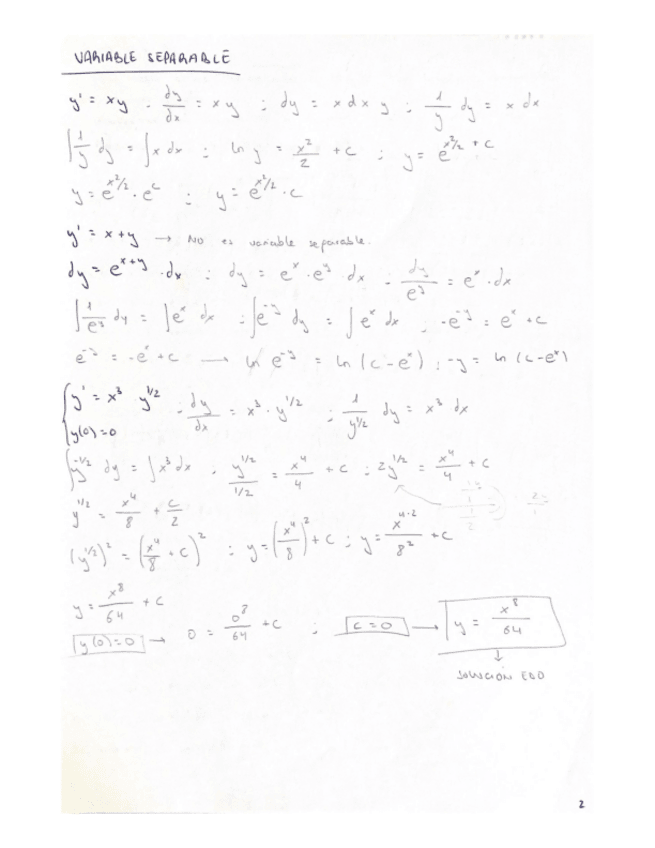 VARIABLE SEPARABLE
y' = xy . dy/dx = xy ; dy = x dx y ; 1/y dy = x dx
∫ 1/y dy = ∫ x dx ; ln y = x²/2 + c ; y = e^(x²/2 + c)
y = e^(x²/2) · e^c ; y = e^(x²/2) · c
y' = x + y → No es variable separable.
dy = e^(x+y) · dx ; dy = e^x · e^y · dx . dy/e^y = e^x · dx
∫ 1/e^y dy = ∫ e^x dx ; ∫ e^-y dy = ∫ e^x dx ; -e^-y = e^x + c
e^-y = -e^x + c → ln e^-y = ln (c - e^x) ; -y = ln (c - e^x)
{ y' = x³ y^(1/2) . dy/dx = x³ · y^(1/2) ; 1/y^(1/2) dy = x³ dx
y(0) = 0
∫ y^(-1/2) dy = ∫ x³ dx ; y^(1/2)/(1/2) = x⁴/4 + c ; 2y^(1/2) = x⁴/4 + c
y^(1/2) = x⁴/8 + c/2
(y^(1/2))² = (x⁴/8 + c)² ; y = (x⁴/8)² + c ; y = x^(4·2)/8² + c
y = x⁸/64 + c
y(0) = 0 → 0 = 0⁸/64 + c ; c = 0 → y = x⁸/64
SOLUCIÓN EDO
2